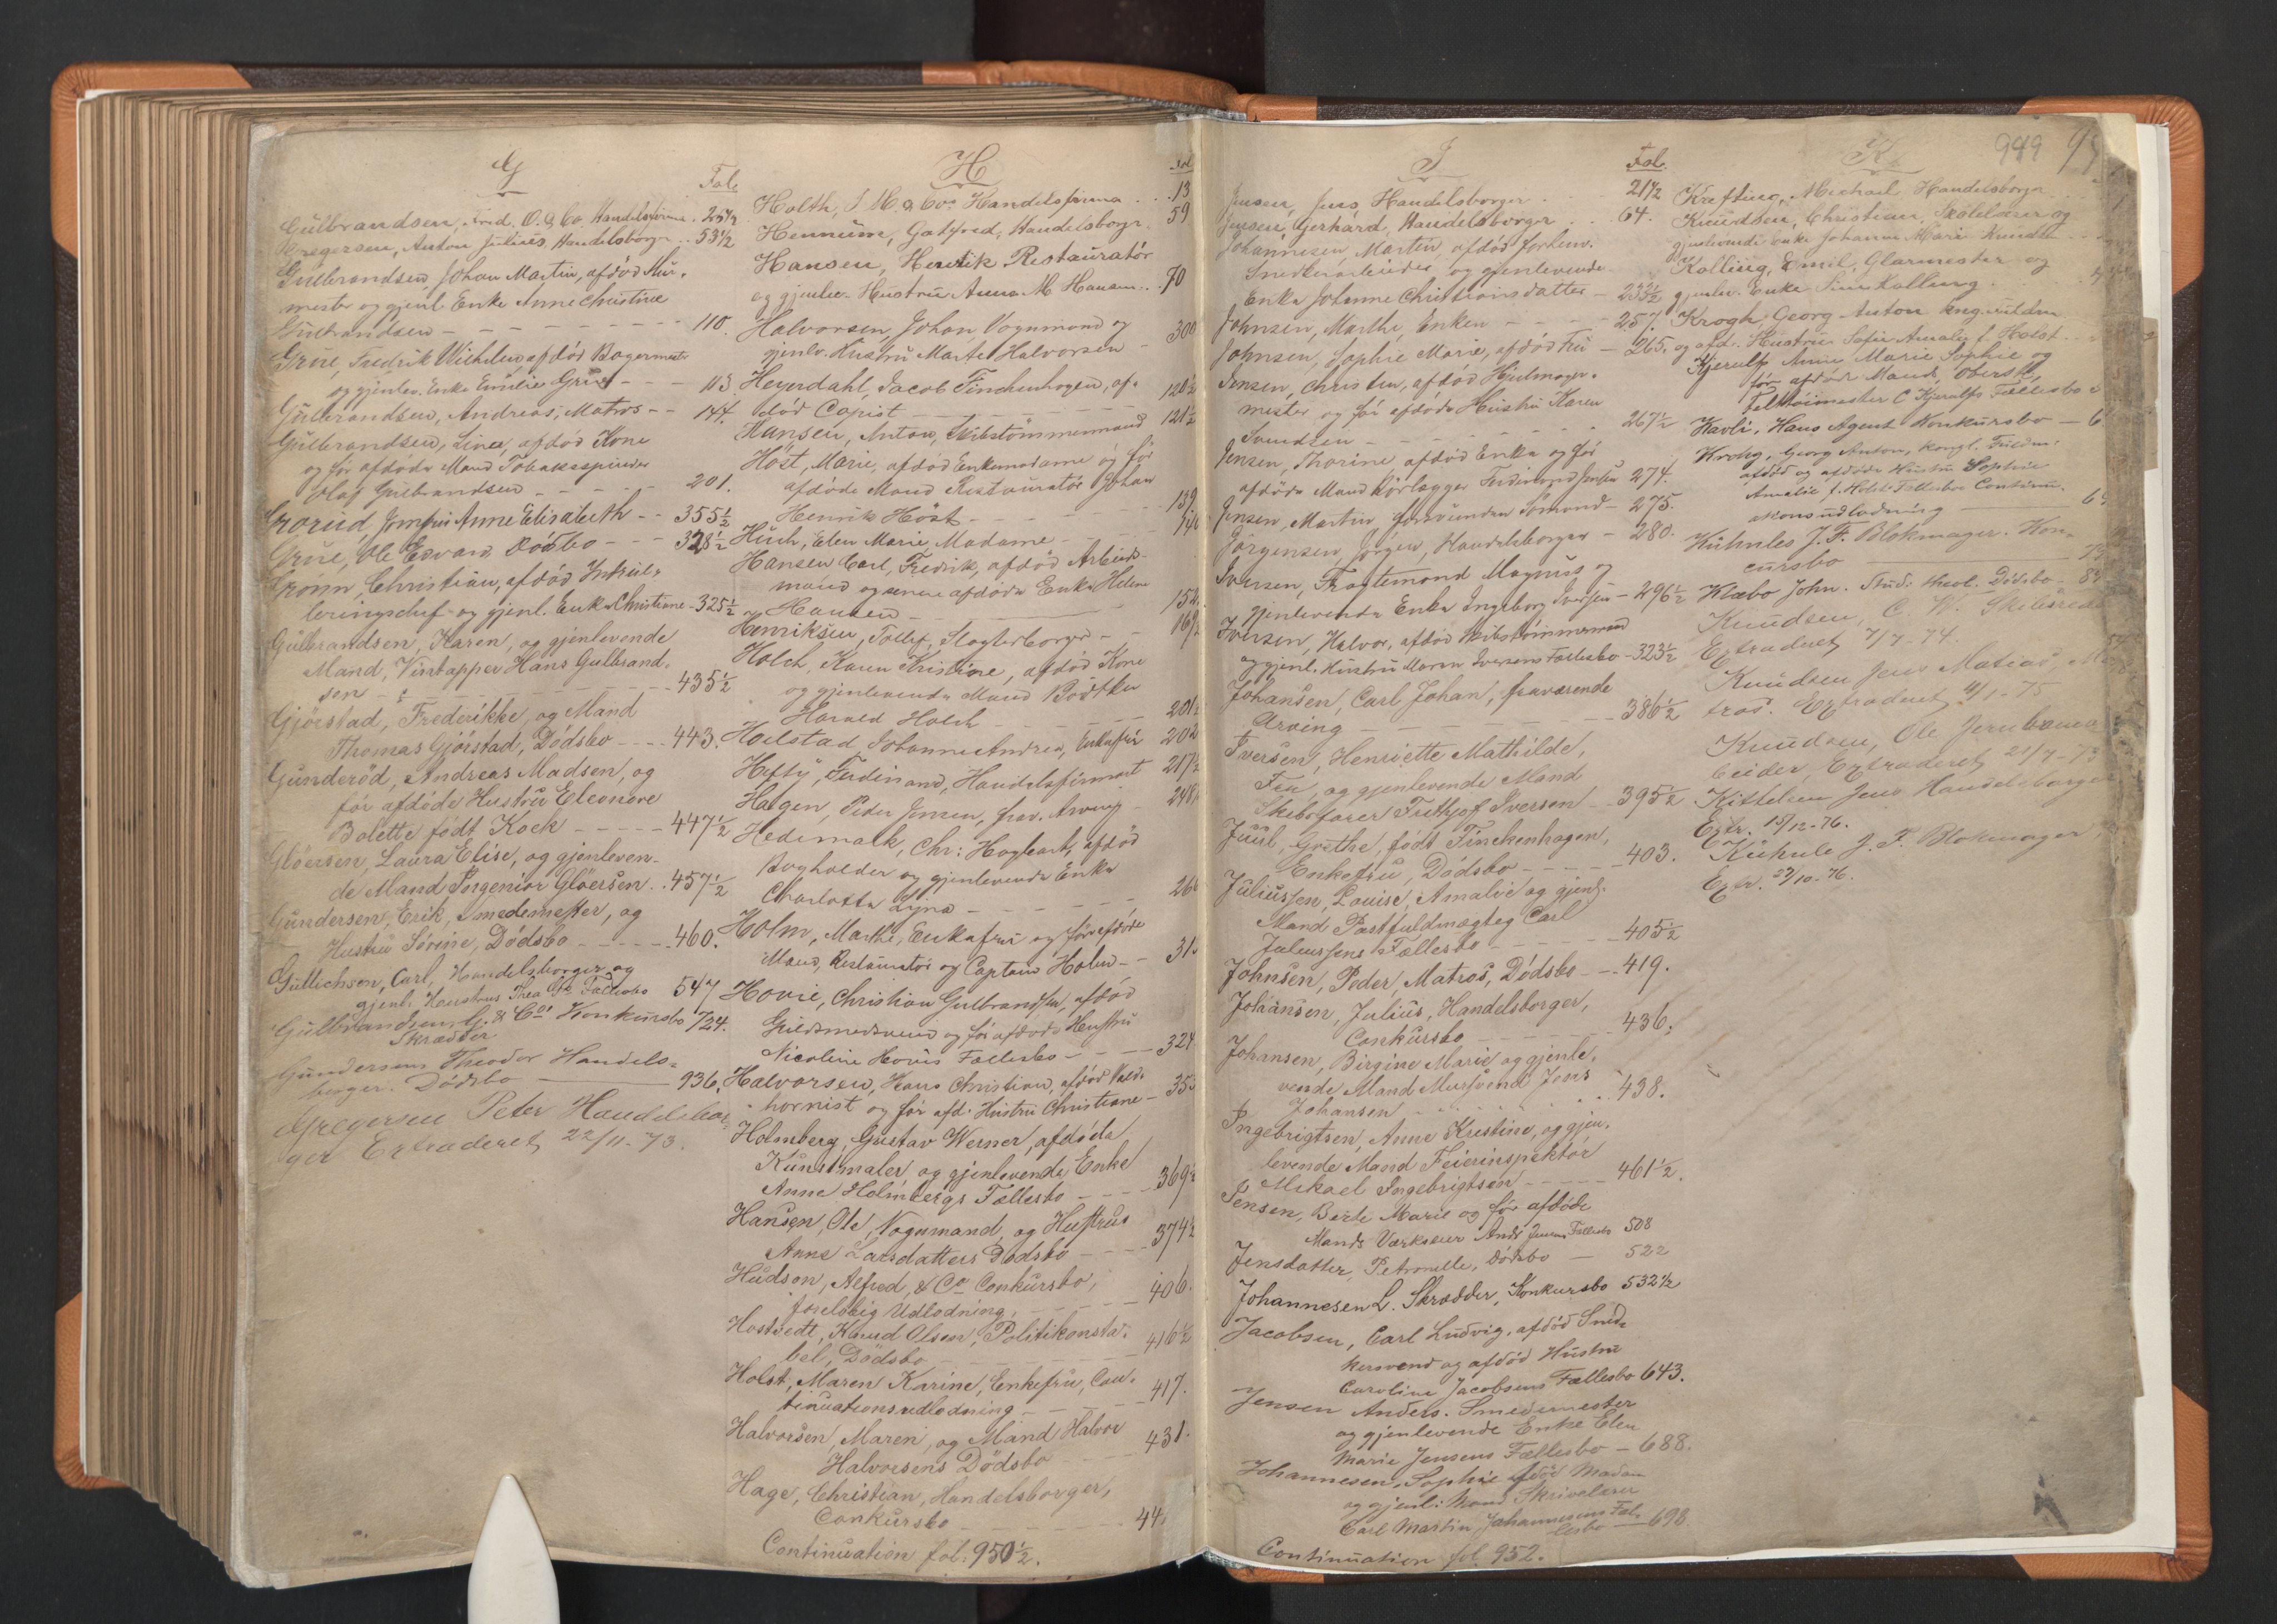 G
Fol.
Gulbrandsen, Fred. O. & Co. Handelsfirma . 25½
Gregersen, Anton Julius, Handelsborger . . 53½
Gulbrandsen, Johan Martin, afdød Mur-
mester og gjenl. Enke Anne Christine
Gulbrandsen - - - 110.
Grüe, Fredrik Wilhelm afdød Bagermestr
og gjenlev. Enke Emilie Grüe - - - 113
Gulbrandsen, Andreas, Matros - - 144.
Gulbrandsen, Sinea, afdød Kone
og før afdøde Mand Tobaksspinder
Olaf Gulbrandsen - - - 201.
Grorud, Jomfru Anne Elisabeth - - 355½
Grüe, Ole Edvard Dødsbo - - - 328½
Grønn, Christian, afdød
og gjenl. Enke Christiane - 325½
Gulbrandsen, Karen, og gjenlevende
Mand, Vintapper Hans Gulbrand-
sen - - - 435½
Gjørstad, Frederikke, og Mand
Thomas Gjørstad, Dødsbo - - - 443.
Gunderød, Andreas Madsen, og
før afdøde Hustru Eleonore
Bolette født Kock - - - 447½
Gløersen, Laura Elise, og gjenleven-
de Mand Ingeniør Gløersen . . 457½
Gundersen, Erik, Smedemester, og
Hustru Sørine, Dødsbo - - - 460.
Gullichsen, Carl, Handelsborger og
gjenl. Hustrus Thea Fællesbo 547
Gulbrandsen G. & Co. Konkursbo 724.
Skrædder
Gundersens Theodor Handels-
borger. Dødsbo — 936.
Gregersen Peter Handelsbor-
ger Extraderet 22/11-73.
H
Fol
Holth, J. M. & Co. Handelsfirma . . 13
Hennum, Gotfred, Handelsborgr. 59
Hansen, Henrik Restauratør
og gjenlev. Hustru Anna M. Hansen . . 70
Halvorsen, Johan Vognmand og
gjenlv. Hustru Marte Halvorsen - 300
Heyerdahl, Jacob Finchenhagen, af-
død Copist - - - 120½
Hansen, Anton, Skibstømmermand 121½
Høst, Marie, afdød Enkemadame og før
afdøde Mand Restauratør Johan
Henrik Høst - - - 139
Huch, Elen Marie, Madame - - 140
Hansen Carl, Fredrik, afdød Arbeids-
mand og senere afdøde Enke Helene
Hansen - - - 152
Henriksen, Tollef, Slagterborger - - 169½
Holch, Karen Kristine, afdød Kone
og gjenlevende Mand Bødtker
Harald Holch - - - 201½
Hoelstad, Johanne Andrea, Enkefru 202
Hefty, Ferdinand, Handelsfirmaet 217½
Haagen, Peder Jensen, frav. Arving - 248
Hedemark, Chr: Hagbart, afdød
Bogholder og gjenlevende Enke
Charlotta Lyna - - - 266
Holm, Marthe, Enkefru og før afdøde
Mand, Restauratør og Captain Holm - - 31
Hovie, Christian Gulbrandsen, afdød
Guldsmedsvend og før afdøde Hustru
Nicoline Hovies Fællesbo - - - 324
Halvorsen, Hans Christian, afdød Vald-
hornist og før afd: Hustru Christiane - 353
Holmberg, Gustav Werner, afdøde
Kunstmaler, og gjenlevende Enke
Anne Holmbergs Fællesbo - - - 369½
Hansen, Ole, Vognmand, og Hustrus
Anne Larsdatters Dødsbo - - - 374½
Hudson, Alfred, & Co. Conkursbo,
foreløbig Udlodning, - - - 406.
Hostvedt, Knud Olsen, Politikonsta-
bel, Dødsbo - - - 416½
Holst, Maren Karine, Enkefru, Con-
tinuationsudlodning - - - 417.
Halvorsen, Maren, og Mand Halvor
Halvorsens Dødsbo - - - 431.
Hage, Christian, Handelsborger,
Conkursbo - - - 44
Continuation fol. 950½.
I
Fol.
Jensen, Jens Handelsborger . . 21½
Jensen, Gerhard, Handelsborger . . 64.
Johannesen, Martin, afdød forhenv.
Snedkerarbeider, og gjenlevende
Enke Johanne Christiansdatter - 233½
Johnsen, Marthe, Enken - - - 257.
Johnsen, Sophie Marie, afdød Fru - 265.
Jensen, Christen, afdød Hjulmager-
mester og før afdøde Hustru Karen
Svendsen - - - 267½
Jensen, Thorine afdød Enke og før
afdøde Mand Rørlægger Ferdinand Jensen 274.
Jensen, Martin, forsvunden Sømand - 275.
Jørgensen, Jørgen, Handelsborger - 280.
Iversen, Fragtemand Magnus og
gjenlevende Enke Ingeborg Iversen - 296½
Iversen, Halvor, afdød Skibstømmermand
og gjenl. Hustru Maren Iversens Fællesbo - 323½
Johansen, Carl Johan, fraværende
Arving - - - 386½
Iversen, Henriette Mathilde,
Fru, og gjenlevende Mand
Skibsfører Frithjof Iversen - - 395½
Juul, Grethe, født Finckenhagen,
Enkefru, Dødsbo - - - 403.
Juliussen, Louise, Amalie og gjenl.
Mand Postfuldmægtig Carl
Juliussens Fællesbo - - - 405½
Johnsen, Peder, Matros, Dødsbo - - 419.
Johansen, Julius, Handelsborger,
Conkursbo - - - 436.
Johansen, Birgine Marie og gjenle-
vende Mand Mursvend Jens
Johansen . . . 438.
Ingebrigtsen, Anne Kristine, og gjen-
levende Mand Feierinspektør
Mikael Ingebrigtsen - - - 461½.
Jensen, Berte Marie og før afdøde
Mands Værkseier Ands Jensens Fællesbo 508
Jensdatter, Petronelle, Dødsbo — 522
Johannesen L. Skrædder, Konkursbo 532½
Jacobsen, Carl Ludvig, afdød Sned-
kersvend og afdød Hustru
Caroline Jacobsens Fællesbo 643.
Jensen Anders. Smedemester
og gjenlevende Enke Elen
Marie Jensens Fællesbo - 688.
Johannesen, Sophie afdød Madam
og gjenl: Mand Skrivelærer
Carl Martin Johannesens Fæl-
lesbo — 698
Continuation fol. 952.
K
949
Krefting, Michael Handelsborger
Knudsen, Christian, Skolelærer og
gjenlevende Enke Johanne Marie Knudsen
Kolling, Emil, Glarmester og
gjenlev. Enke Sine Kolling.
Krogh, Georg Anton kng. Fuldm.
og afd. Hustru Sofie Amalie f. Holst
Kjerulf, Anne Marie Sophie og
før afdøde Mands, Oberst,
Felttøimester C Kjerulfs Fællesbo
Kavli, Hans Agent Konkursbo — 6
Krohg, Georg Anton, kongl. Fuldm:
afdød og afdøde Hustru Sophie
Amalie f. Holst Fællesbo Continu-
ationsudlodning — 6
Kühnles J. F. Blokmager. Kon-
cursbo — 7
Klæbo John. Stud: theol. Dødsbo - 8
Knudsen, C. W. Skibsreder
Extraderet 7/7-74.
Knudsen Jens Matias, Ma-
tros. Extraderet 4/1-75
Knudsen, Ole Jernbanear-
beider, Extraderet 21/7-75
Kittelsen Jens Handelsborger
Extr. 15/12-76.
Kühnle J. F. Blokmager
Extr. 27/10-76.